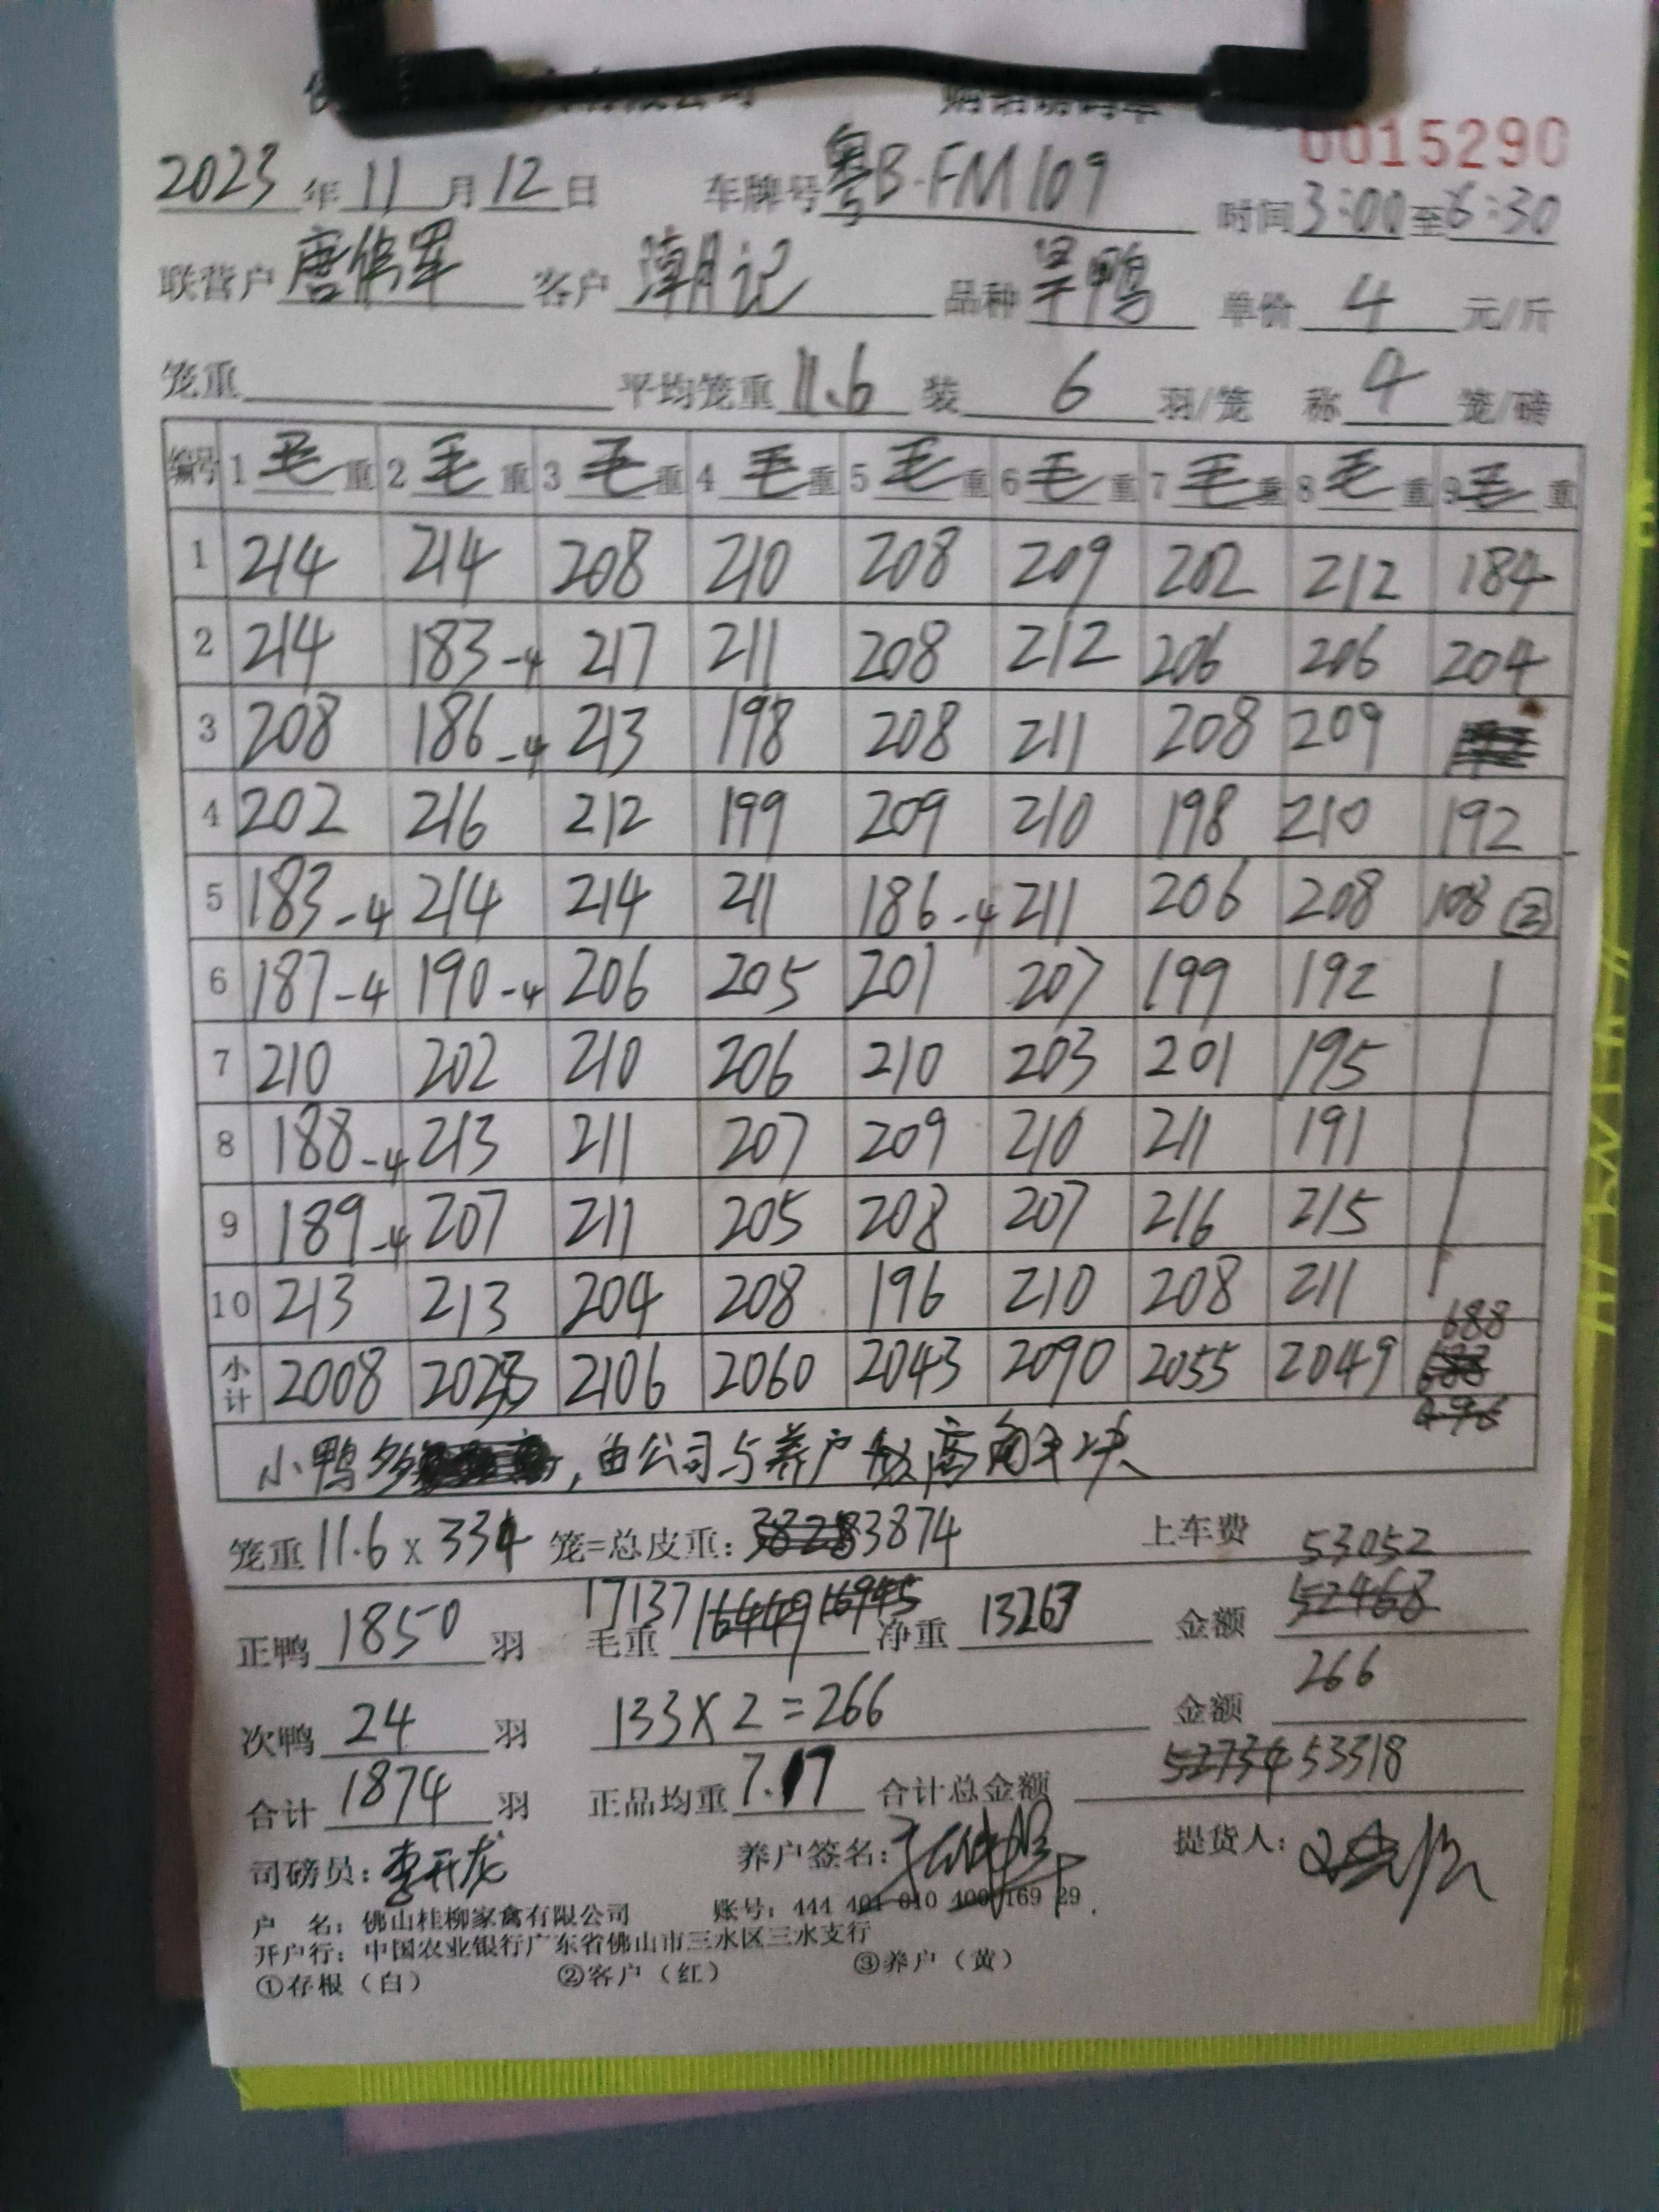 0015290
2023年11月12日 车牌号粤B·FM109 时间3:00至6:30
联营户唐伟军 客户潮记 品种呈鸭 单价4元/斤
笼重 平均笼重11.6 装6羽/笼 称4笼/磅
编号 1毛重 2毛重 3毛重 4毛重 5毛重 6毛重 7毛重 8毛重 9毛重
1 214 214 208 210 208 209 202 212 184
2 214 183-4 217 211 208 212 206 206 204
3 208 186-4 213 198 208 211 208 209
4 202 216 212 199 209 210 198 210 192
5 183-4 214 214 211 186-4 211 206 208 108②
6 187-4 190-4 206 205 201 207 199 192
7 210 202 210 206 210 203 201 195
8 188-4 213 211 207 209 210 211 191
9 189-4 207 211 205 208 207 216 215
10 213 213 204 208 196 210 208 211
小计 2008 2023 2106 2060 2043 2090 2055 2049 688
小鸭多,由公司与养户
笼重11.6×334笼=总皮重:3874 上车费
正鸭1850羽 毛重17137 净重13263 金额53052
次鸭24羽 133×2=266 金额266
合计1874羽 正品均重7.17 合计总金额53318
司磅员:李开龙 养户签名: 提货人:
户 名:佛山桂柳家禽有限公司 账号:444 491 010 400 169 29
开户行:中国农业银行广东省佛山市三水区三水支行
①存根(白) ②客户(红) ③养户(黄)